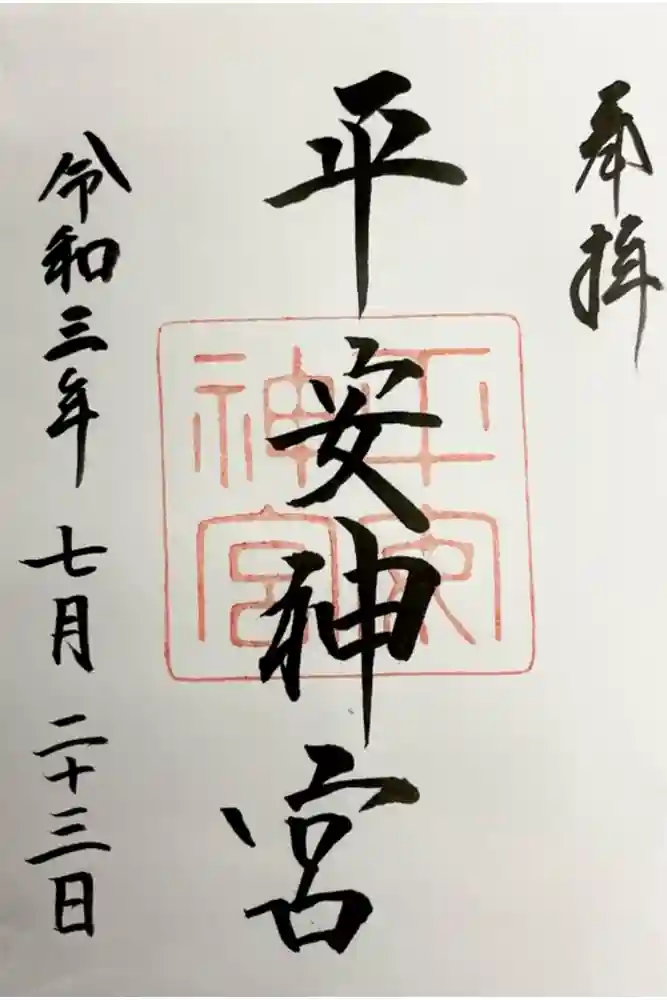 奉拝
平安神宮
平安神宮
令和三年 七月 二十三日